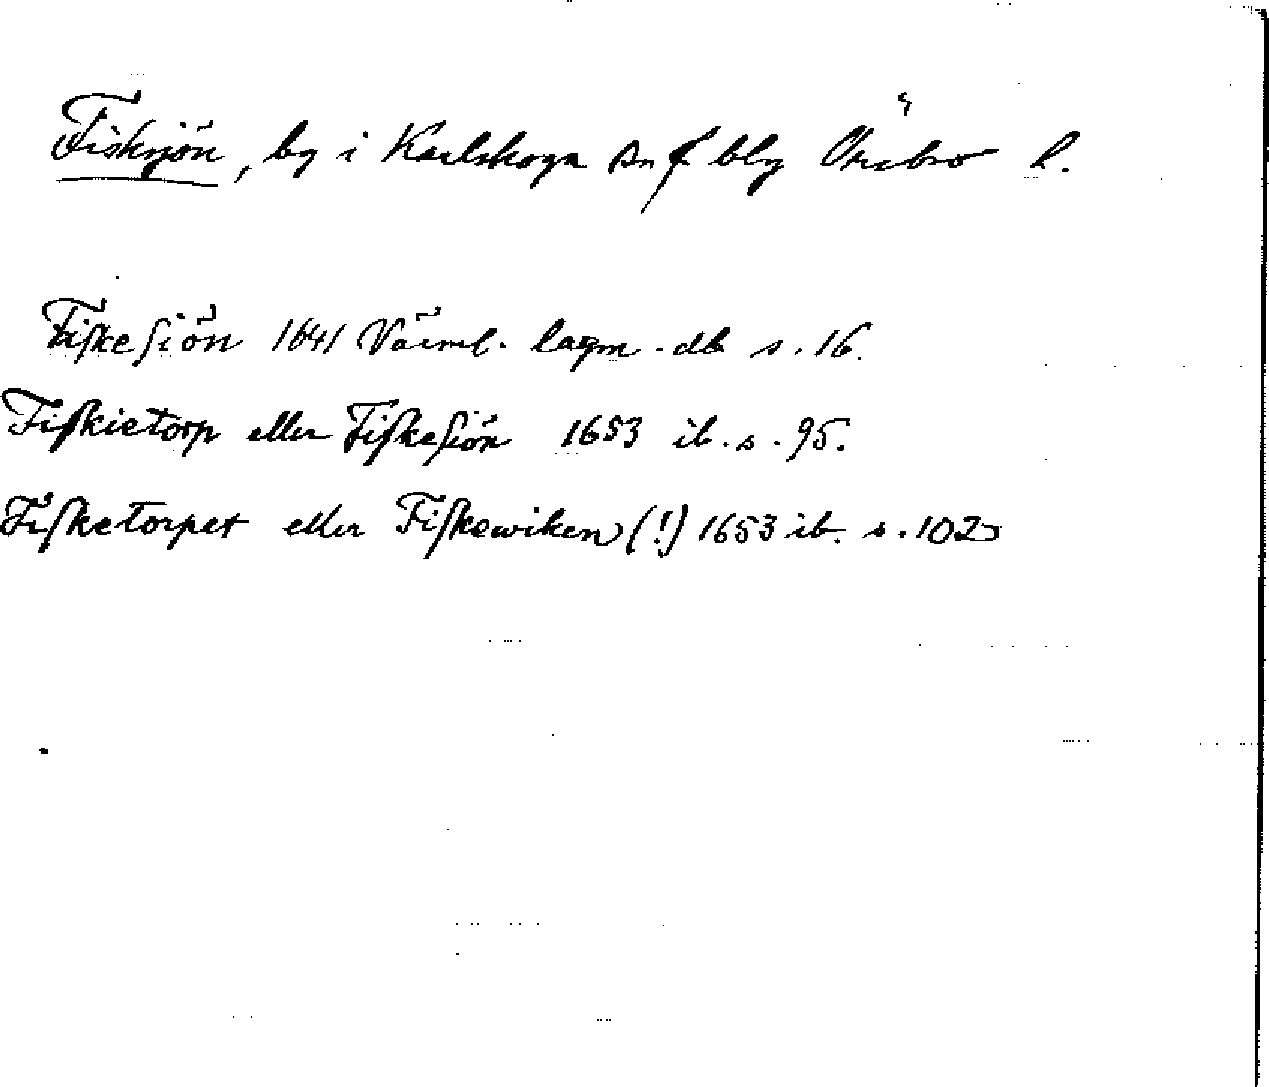 Fisksjön, by i Karlskoga sn o blg Örebro l.
Fiskesiön 1641 Värml. lagm.-db s. 16.
Fiskietorp eller Fiskesiön 1653 ib. s. 95.
Fisketorpet eller Fiskewiken (!) 1653 ib. s. 102